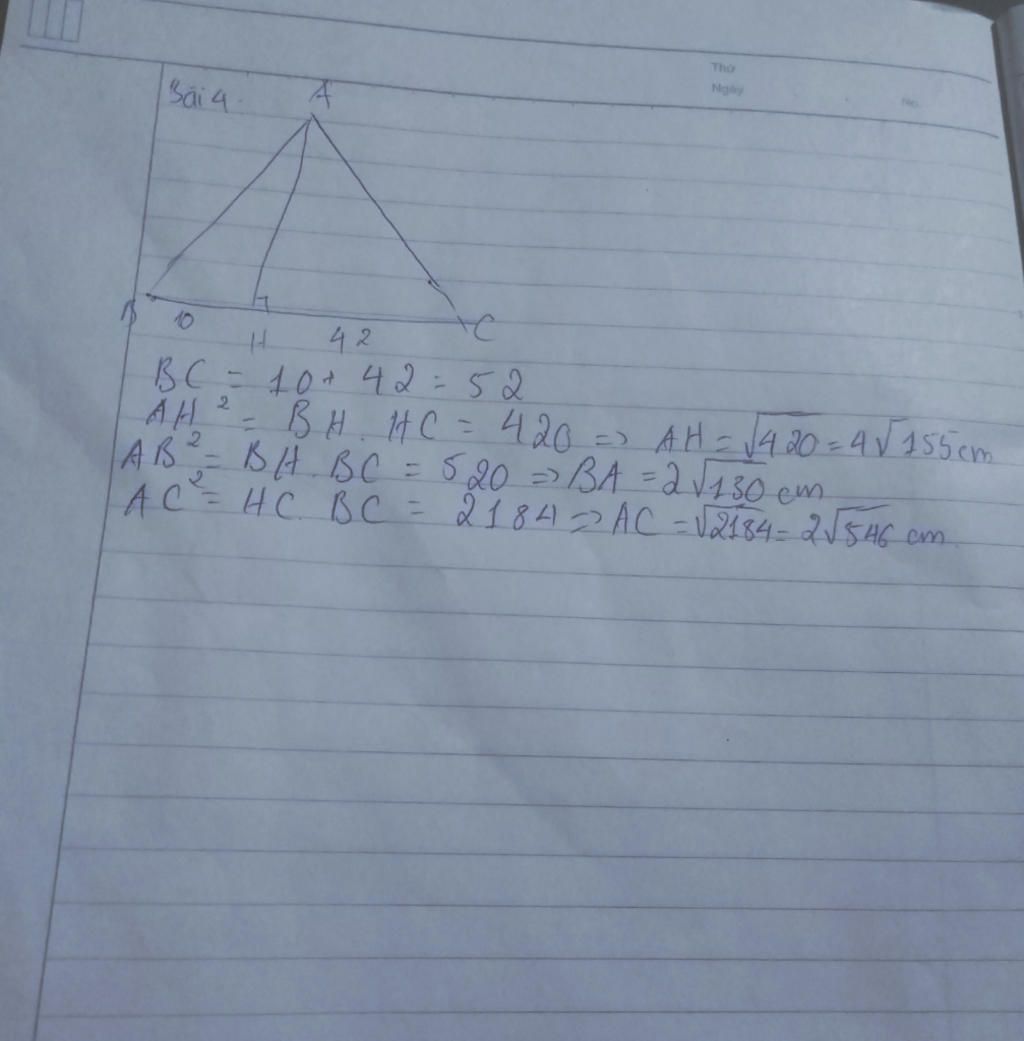 Thứ
Ngày
No.
Bài 4.
A
B
10
H
42
C
BC = 10 + 42 = 52
AH² = BH . HC = 420 => AH = √420 = 4√155 cm
AB² = BH . BC = 520 => BA = 2√130 cm
AC² = HC . BC = 2184 => AC = √2184 = 2√546 cm.